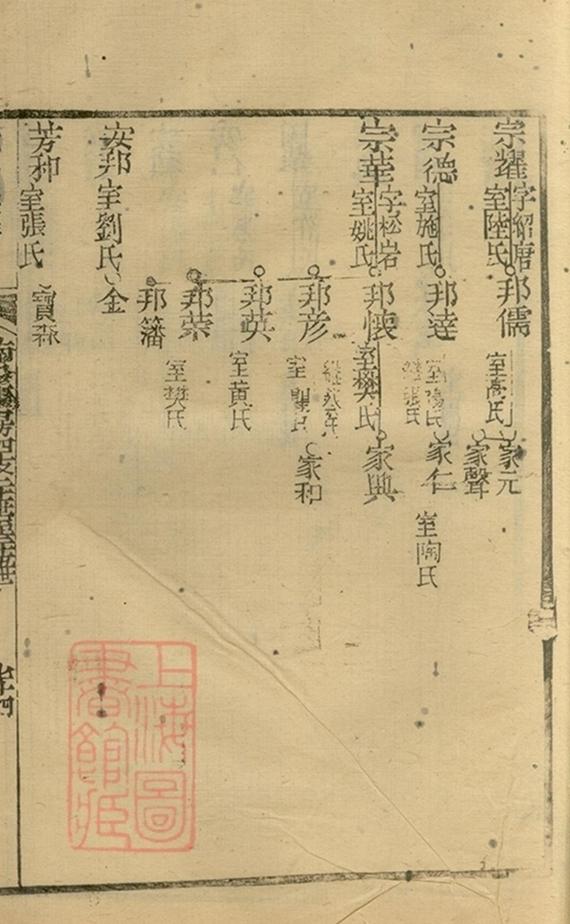 宗耀 字紹唐 室陸氏 邦儒 室高氏 家元
家聲
宗德 室施氏 邦達 家仁 室陶氏
宗華 字松岩 室姚氏 邦懷 室樊氏 家興
邦彥 家和
邦英 室黃氏
邦榮 室樊氏
邦藩
安邦 室劉氏 金
芳和 室張氏 寶森
上海圖書館藏